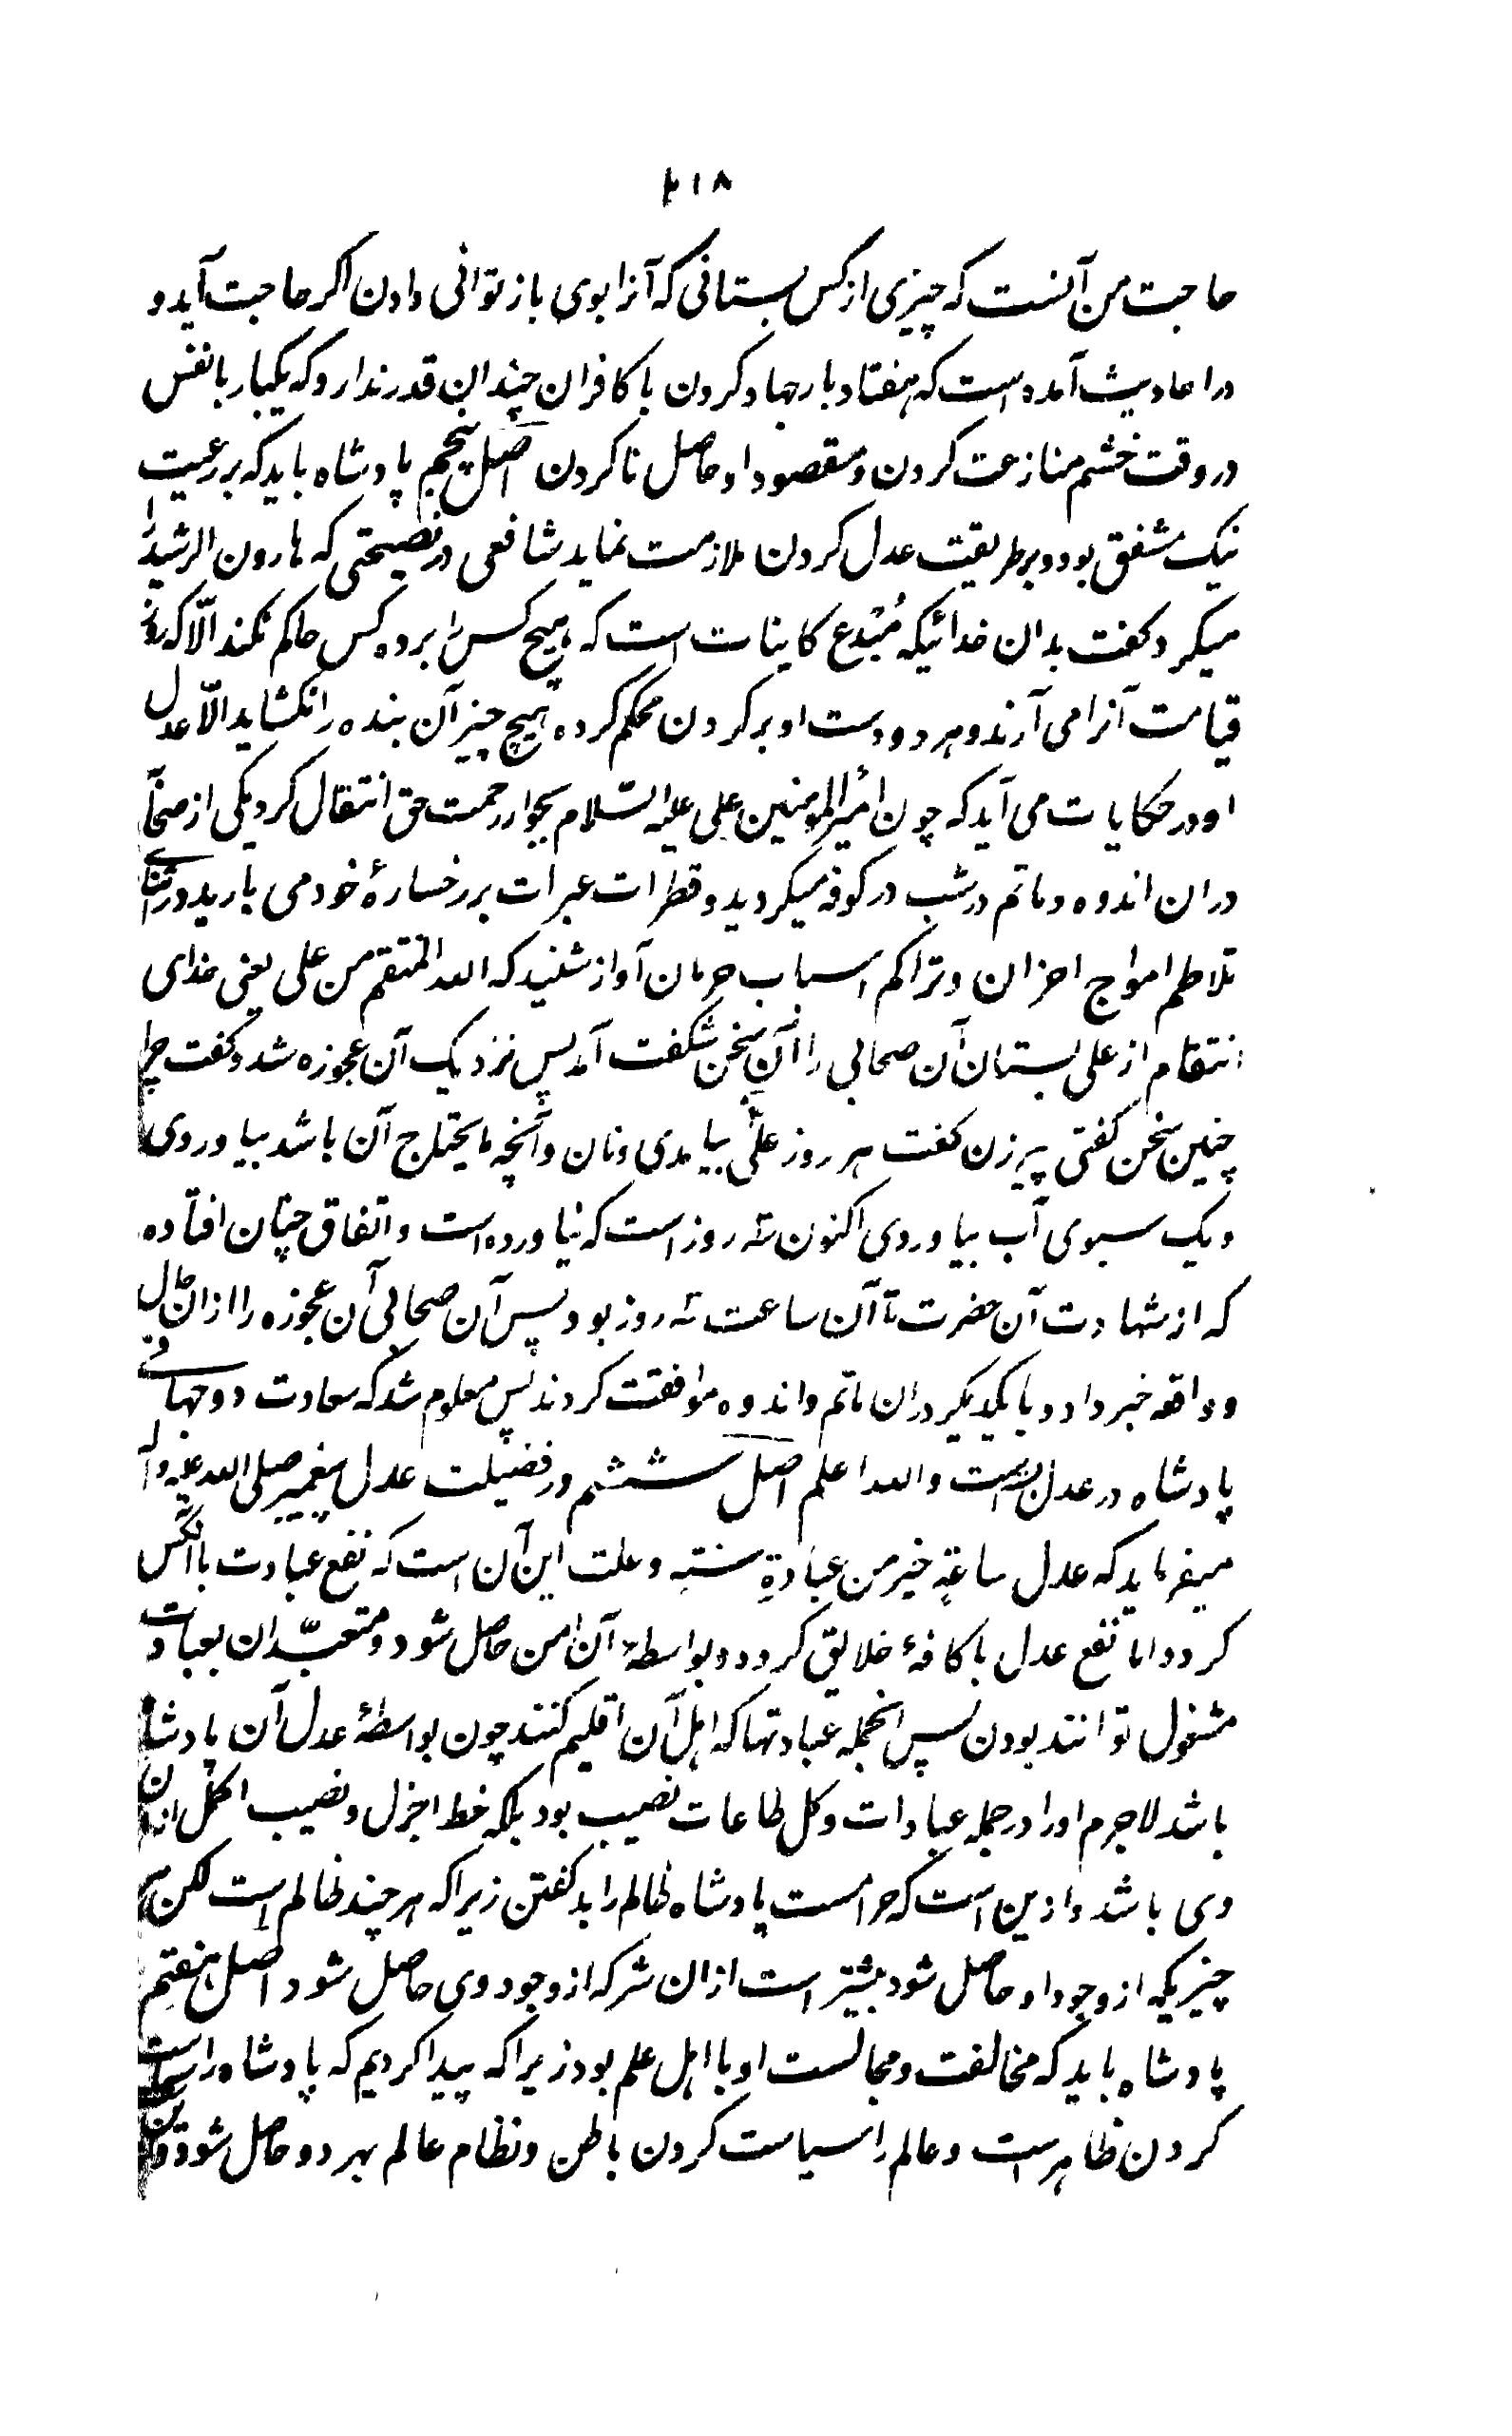 ۲۱۸
حاجت من آنست که چیزی از کس بستانی که آنرا بوی باز توانی دادن اگر حاجت آید و
در احادیث آمده است که هفتاد بار جهاد کردن با کافران چندان قدر ندارد که یکبار با نفس
در وقت خشم منازعت کردن و مقصود او حاصل ناکردن اصل پنجم پادشاه باید که بر رعیت
نیک مشفق بود و بر طریقت عدل کردن ملازمت نماید شافعی در نصیحتی که هارون الرشید را
میکرد گفت بدان خدائیکه مُبْدِع کاینات است که هیچ کس را بر ده کس حاکم نکند الّا که روز
قیامت آنرا می آرند و هر دو دست او بر گردن محکم کرده هیچ چیز آن بنده را نگشاید الّا عدل
او و در حکایات می آید که چون امیرالمومنین علی علیه السّلام بجوار رحمت حق انتقال کرد یکی از صحابَه
دران اندوه و ماتم در شب در کوفه میگردید و قطرات عبرات بر رخسارهٔ خود می بارید و در اثنای
تلاطم امواج احزان و تراکم اسباب حرمان آواز شنید که الله انتقم من علی یعنی خدای
انتقام از علی بستان آن صحابی را آن سخن شگفت آمد پس نزدیک آن عجوزه شد و گفت چرا
چنین سخن گفتی پیرزن گفت هر روز علی بیامدی و نان و آنچه مایحتاج آن باشد بیاوردی
و یک سبوی آب بیاوردی اکنون سه روز است که نیاورده است و اتفاق چنان افتاده
که از شهادت آن حضرت تا آن ساعت سه روز بود پس آن صحابی آن عجوزه را از ان حال
و واقعه خبر داد و با یکدیگر دران ماتم و اندوه موافقت کردند پس معلوم شد که سعادت دوجهانی
پادشاه در عدل است والله اعلم اصل ششم در فضیلت عدل پیغمبر صلی الله علیه و آله
میفرماید که عدل ساعةٍ خیر من عبادةِ سنته و علت این آن است که نفع عبادت با آنکس
گردد اما نفع عدل با کافهٔ خلایق گردد و بواسطهٔ آن امن حاصل شود و متعبّدان بعبادت
مشغول توانند بودن پس آنجمله عبادتها که اهل آن اقلیم کنند چون بواسطهٔ عدل آن پادشاه
باشد لاجرم اورا در جمله عبادات و کل طاعات نصیب بود بلکه خط اجزل و نصیب اکمل ازان
وی باشد و ازین است که حرامست پادشاه ظالم را بد گفتن زیرا که هر چند ظالم است لکن
چیزیکه از وجود او حاصل شود بیشتر است ازان شر که از وجود وی حاصل شود اصل هفتم
پادشاه باید که مخالفت و مجالست او با اهل علم بود زیرا که پیدا کردیم که پادشاه را سیاست
کردن ظاهر است و عالم را سیاست کردن باطن و نظام عالم بهر دو حاصل شود